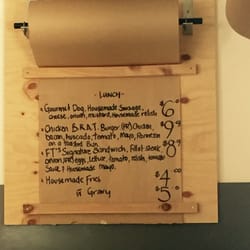 - LUNCH -
- Gourmet Dog, Housemade Sausage, $6
cheese, onion, mustard, Housemade Relish
- Chicken B.R.A.T. Burger Chicken, $9
bacon, avocado, tomato, Mayo, Parmesan
on a toasted Bun
- FT'S Signature Sandwich, Fillet steak, $8
onion, egg, lettuce, tomato, relish, tomato
Sauce & Housemade mayo.
- Housemade Fries $4
" Gravy 5